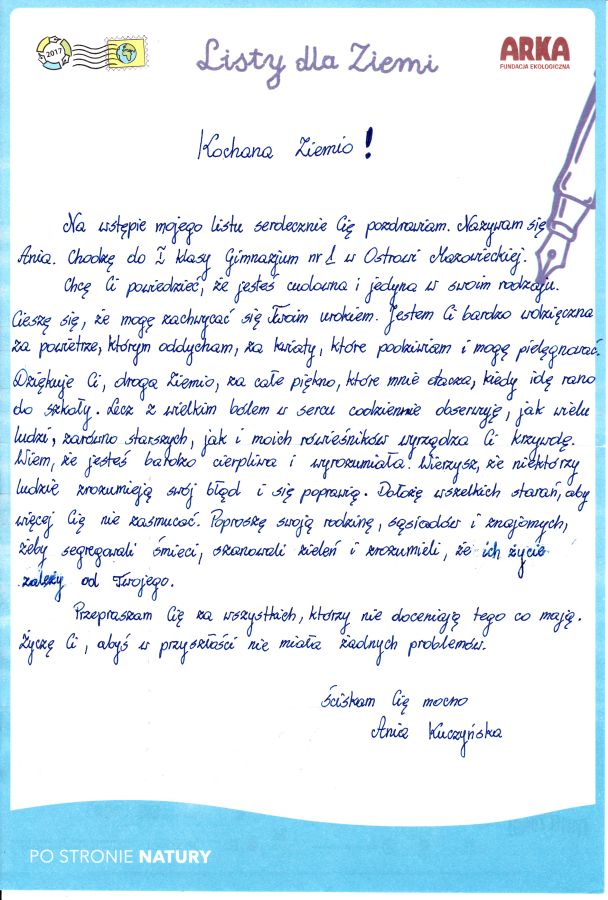 2017
Listy dla Ziemi
ARKA
FUNDACJA EKOLOGICZNA
Kochana Ziemio!
Na wstępie mojego listu serdecznie Cię pozdrawiam. Nazywam się
Ania. Chodzę do I klasy Gimnazjum nr 1 w Ostrowi Mazowieckiej.
Chcę Ci powiedzieć, że jesteś cudowna i jedyna w swoim rodzaju.
Cieszę się, że mogę zachwycać się Twoim urokiem. Jestem Ci bardzo wdzięczna
za powietrze, którym oddycham, za kwiaty, które podziwiam i mogę pielęgnować.
Dziękuję Ci, droga Ziemio, za całe piękno, które mnie otacza, kiedy idę rano
do szkoły. Lecz z wielkim bólem w sercu codziennie obserwuję, jak wielu
ludzi, zarówno starszych, jak i moich rówieśników wyrządza Ci krzywdę.
Wiem, że jesteś bardzo cierpliwa i wyrozumiała. Wierzysz, że niektórzy
ludzie zrozumieją swój błąd i się poprawią. Dołożę wszelkich starań, aby
więcej Cię nie zasmucać. Poproszę swoją rodzinę, sąsiadów i znajomych,
żeby segregowali śmieci, szanowali zieleń i zrozumieli, że ich życie
zależy od Twojego.
Przepraszam Cię za wszystkich, którzy nie doceniają tego co mają.
Życzę Ci, abyś w przyszłości nie miała żadnych problemów.
Ściskam Cię mocno
Ania Kuczyńska
PO STRONIE NATURY